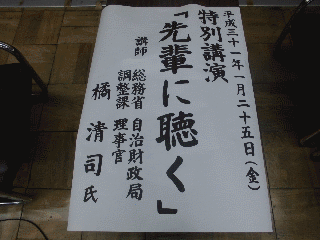 平成三十一年一月二十五日（金）
特別講演
「先輩に聴く」
講師 総務省 自治財政局
調整課 理事官
橘 清司 氏